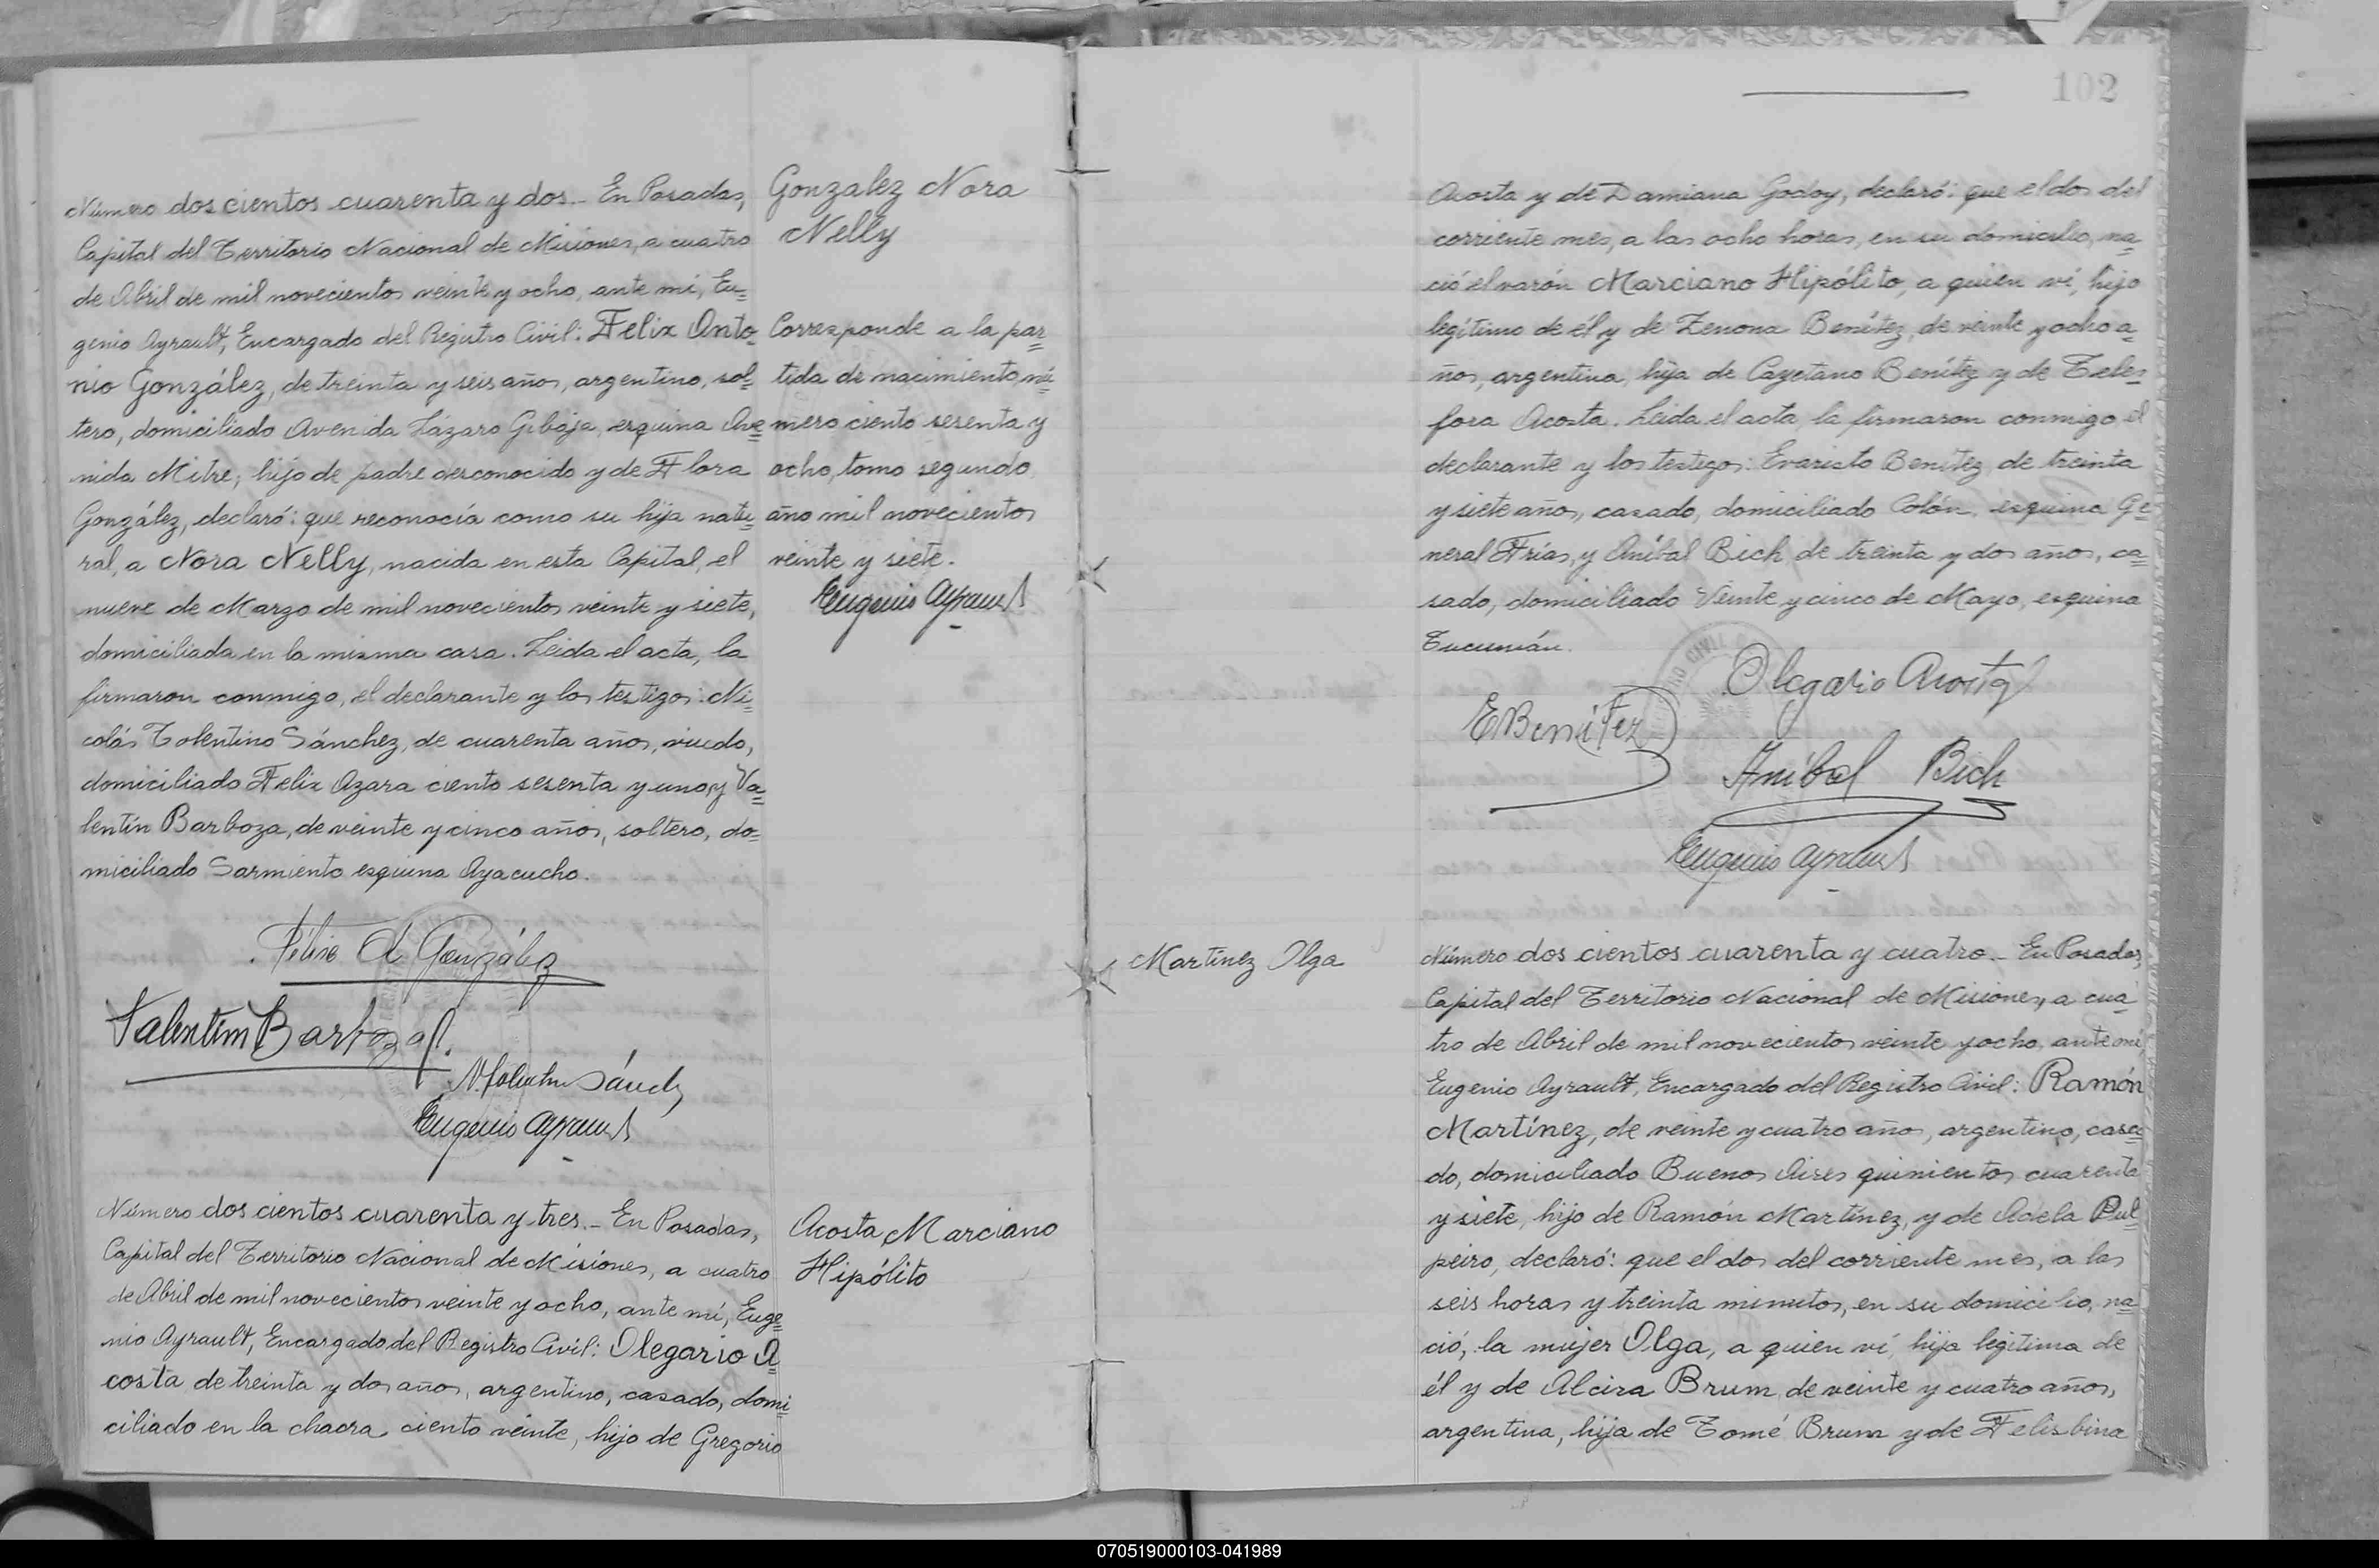 Número dos cientos cuarenta y dos.- En Posadas,
Capital del Territorio Nacional de Misiones, a cuatro
de Abril de mil novecientos veinte y ocho, ante mí, Eu=
genio Ayrault, Encargado del Registro Civil: Felix Anto=
nio González, de treinta y seis años, argentino, sol=
tero, domiciliado Avenida Lázaro Gibaja, esquina Ave=
nida Mitre, hijo de padre desconocido y de Flora
González, declaró: que reconocía como su hija natu=
ral, a Nora Nelly, nacida en esta Capital, el
nueve de Marzo de mil novecientos veinte y siete,
domiciliada en la misma casa. Leida el acta, la
firmaron conmigo, el declarante y los testigos: Ni=
colás Tolentino Sánchez, de cuarenta años, viudo,
domiciliado Felix Azara ciento sesenta y uno, y Va=
lentín Barboza, de veinte y cinco años, soltero, do=
miciliado Sarmiento esquina Ayacucho.
Félix A González
Valentin Barboza
N. Tolentino Sánchez
Eugenio Ayrault
Gonzalez Nora
Nelly
Corresponde a la par=
tida de nacimiento nú=
mero ciento sesenta y
ocho, tomo segundo
año mil novecientos
veinte y siete.
Eugenio Ayrault
Número dos cientos cuarenta y tres.- En Posadas,
Capital del Territorio Nacional de Misiones, a cuatro
de Abril de mil novecientos veinte y ocho, ante mí, Euge=
nio Ayrault, Encargado del Registro Civil: Olegario A=
costa de treinta y dos años, argentino, casado, domi=
ciliado en la chacra ciento veinte, hijo de Gregorio
Acosta Marciano
Hipólito
102
Acosta y de Damiana Godoy, declaró: que el dos del
corriente mes, a las ocho horas, en su domicilio, na=
ció el varón Marciano Hipólito, a quien ví, hijo
legítimo de él y de Zenona Benítez, de veinte y ocho a=
ños, argentina, hija de Cayetano Benítez y de Teles=
fora Acosta. Leida el acta, la firmaron conmigo el
declarante y los testigos: Evaristo Benítez, de treinta
y siete años, casado, domiciliado Colón, esquina Ge=
neral Frías, y Aníbal Bich, de treinta y dos años, ca=
sado, domiciliado Veinte y cinco de Mayo, esquina
Tucumán.
Olegario Acosta
E Benitez
Anibal Bich
Eugenio Ayrault
Martínez Olga
Número dos cientos cuarenta y cuatro.- En Posadas,
Capital del Territorio Nacional de Misiones, a cua=
tro de Abril de mil novecientos veinte y ocho, ante mí,
Eugenio Ayrault, Encargado del Registro Civil: Ramón
Martínez, de veinte y cuatro años, argentino, casa=
do, domiciliado Buenos Aires quinientos cuarenta
y siete, hijo de Ramón Martínez, y de Adela Pul=
peiro, declaró: que el dos del corriente mes, a las
seis horas y treinta minutos, en su domicilio, na=
ció, la mujer Olga, a quien ví, hija legítima de
él y de Alcira Brum, de veinte y cuatro años,
argentina, hija de Tomé Brum y de Felisbina
070519000103-041989